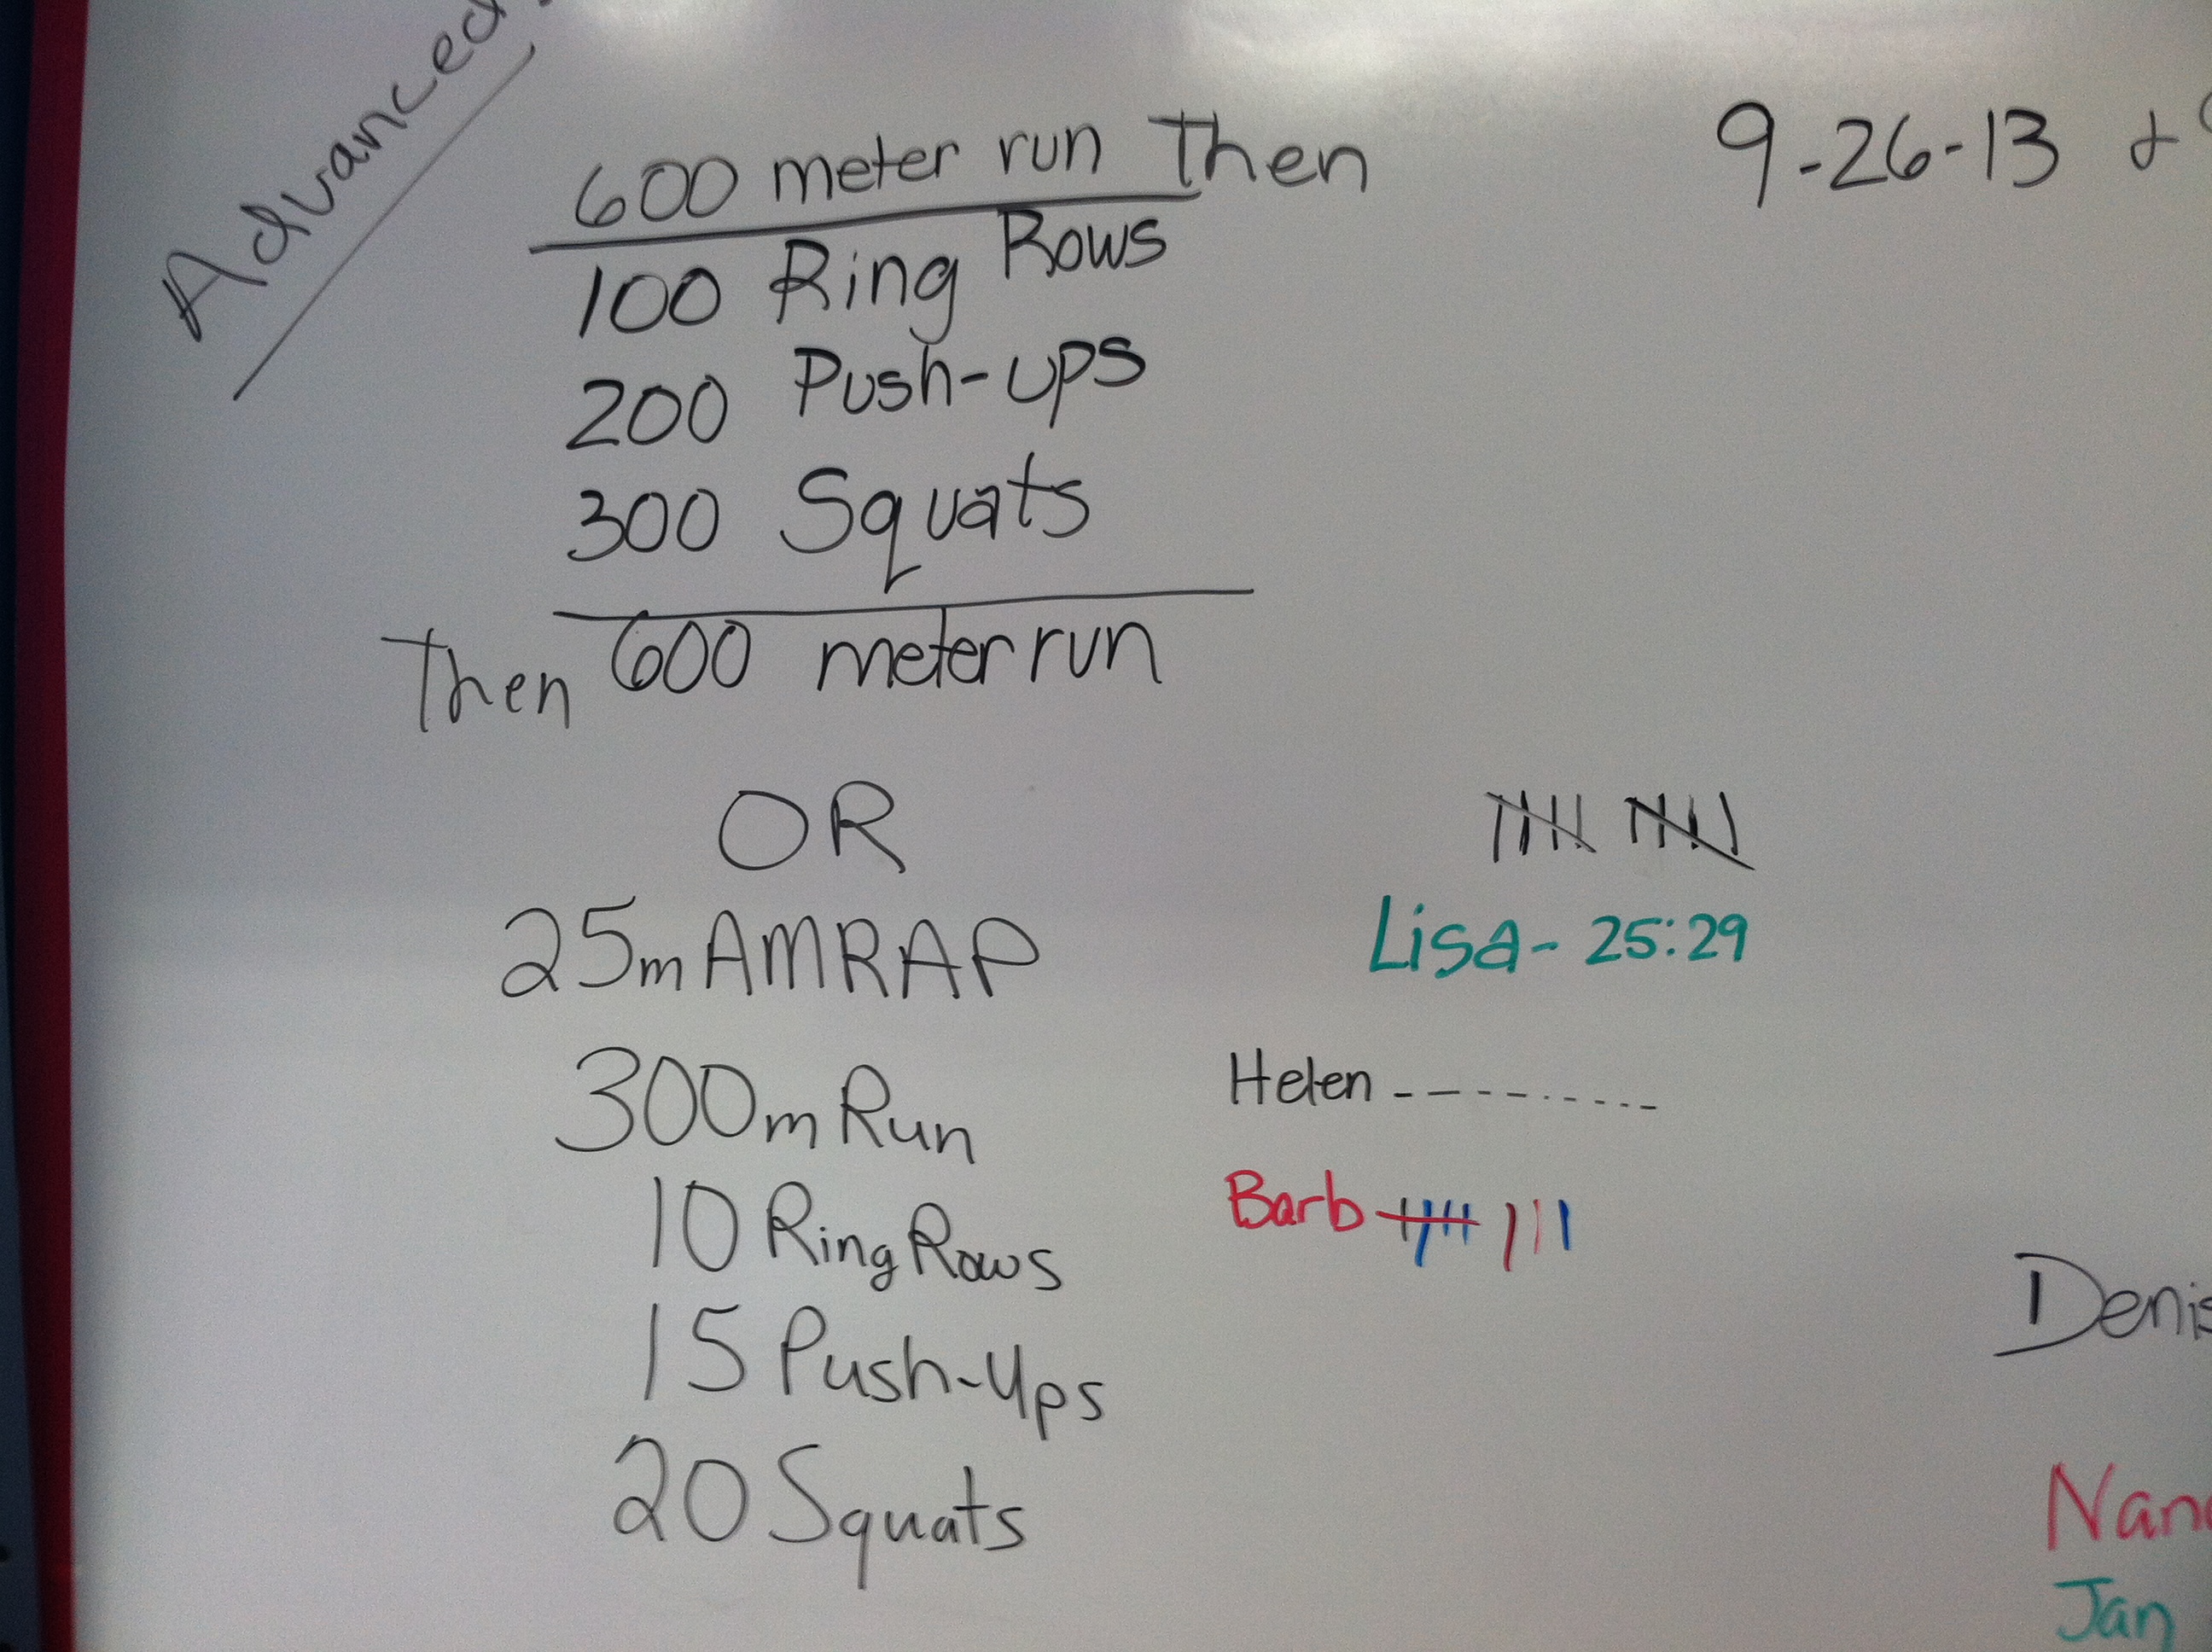 Advanced
600 meter run Then
9-26-13 +
100 Ring Rows
200 Push-ups
300 Squats
Then 600 meter run
OR
25m AMRAP
Lisa - 25:29
300m Run
Helen ---------
10 Ring Rows
Barb
15 Push-Ups
20 Squats
Jan